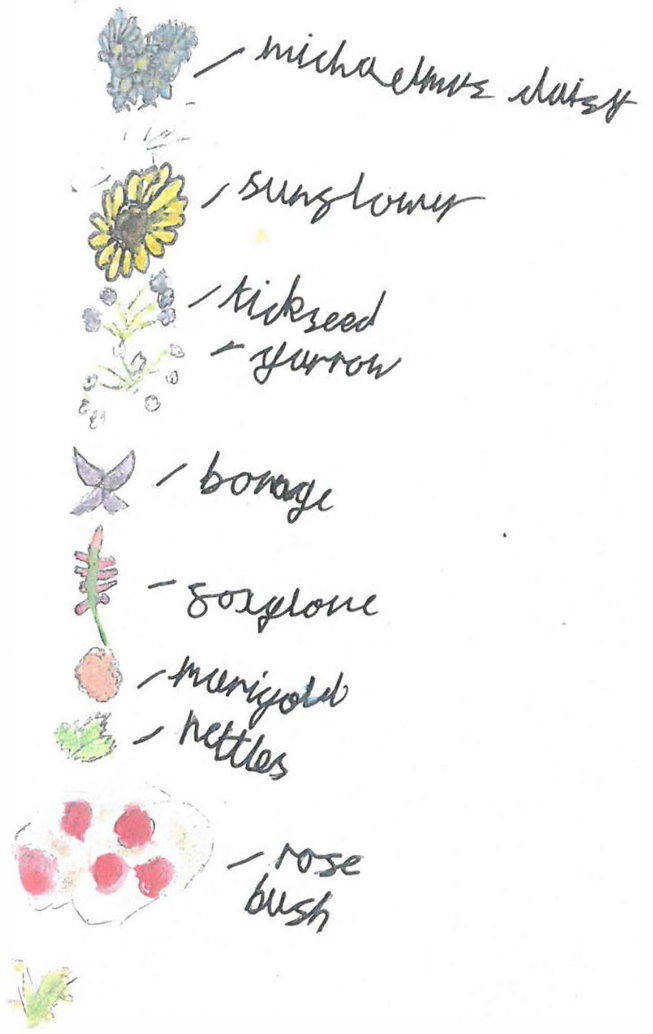 michaelmas daisy
sunflower
tickseed
yarrow
borage
foxglove
marigold
nettles
rose
bush